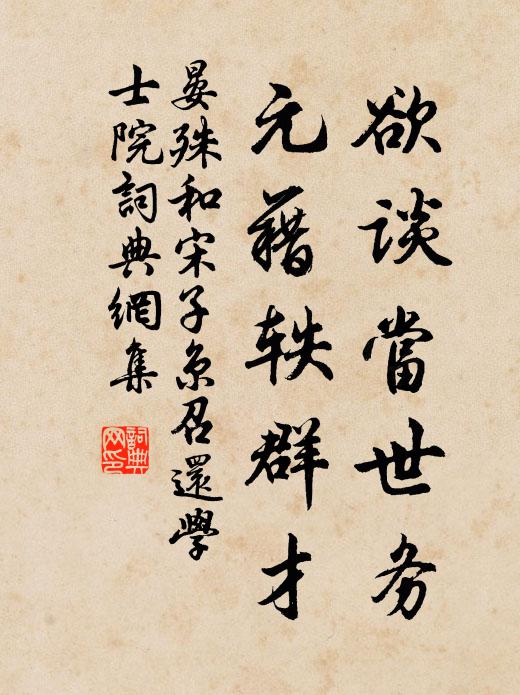 欲谈當世务
元藉轶群才
晏殊和宋子京召還學
士院詞典網集
詞典网印